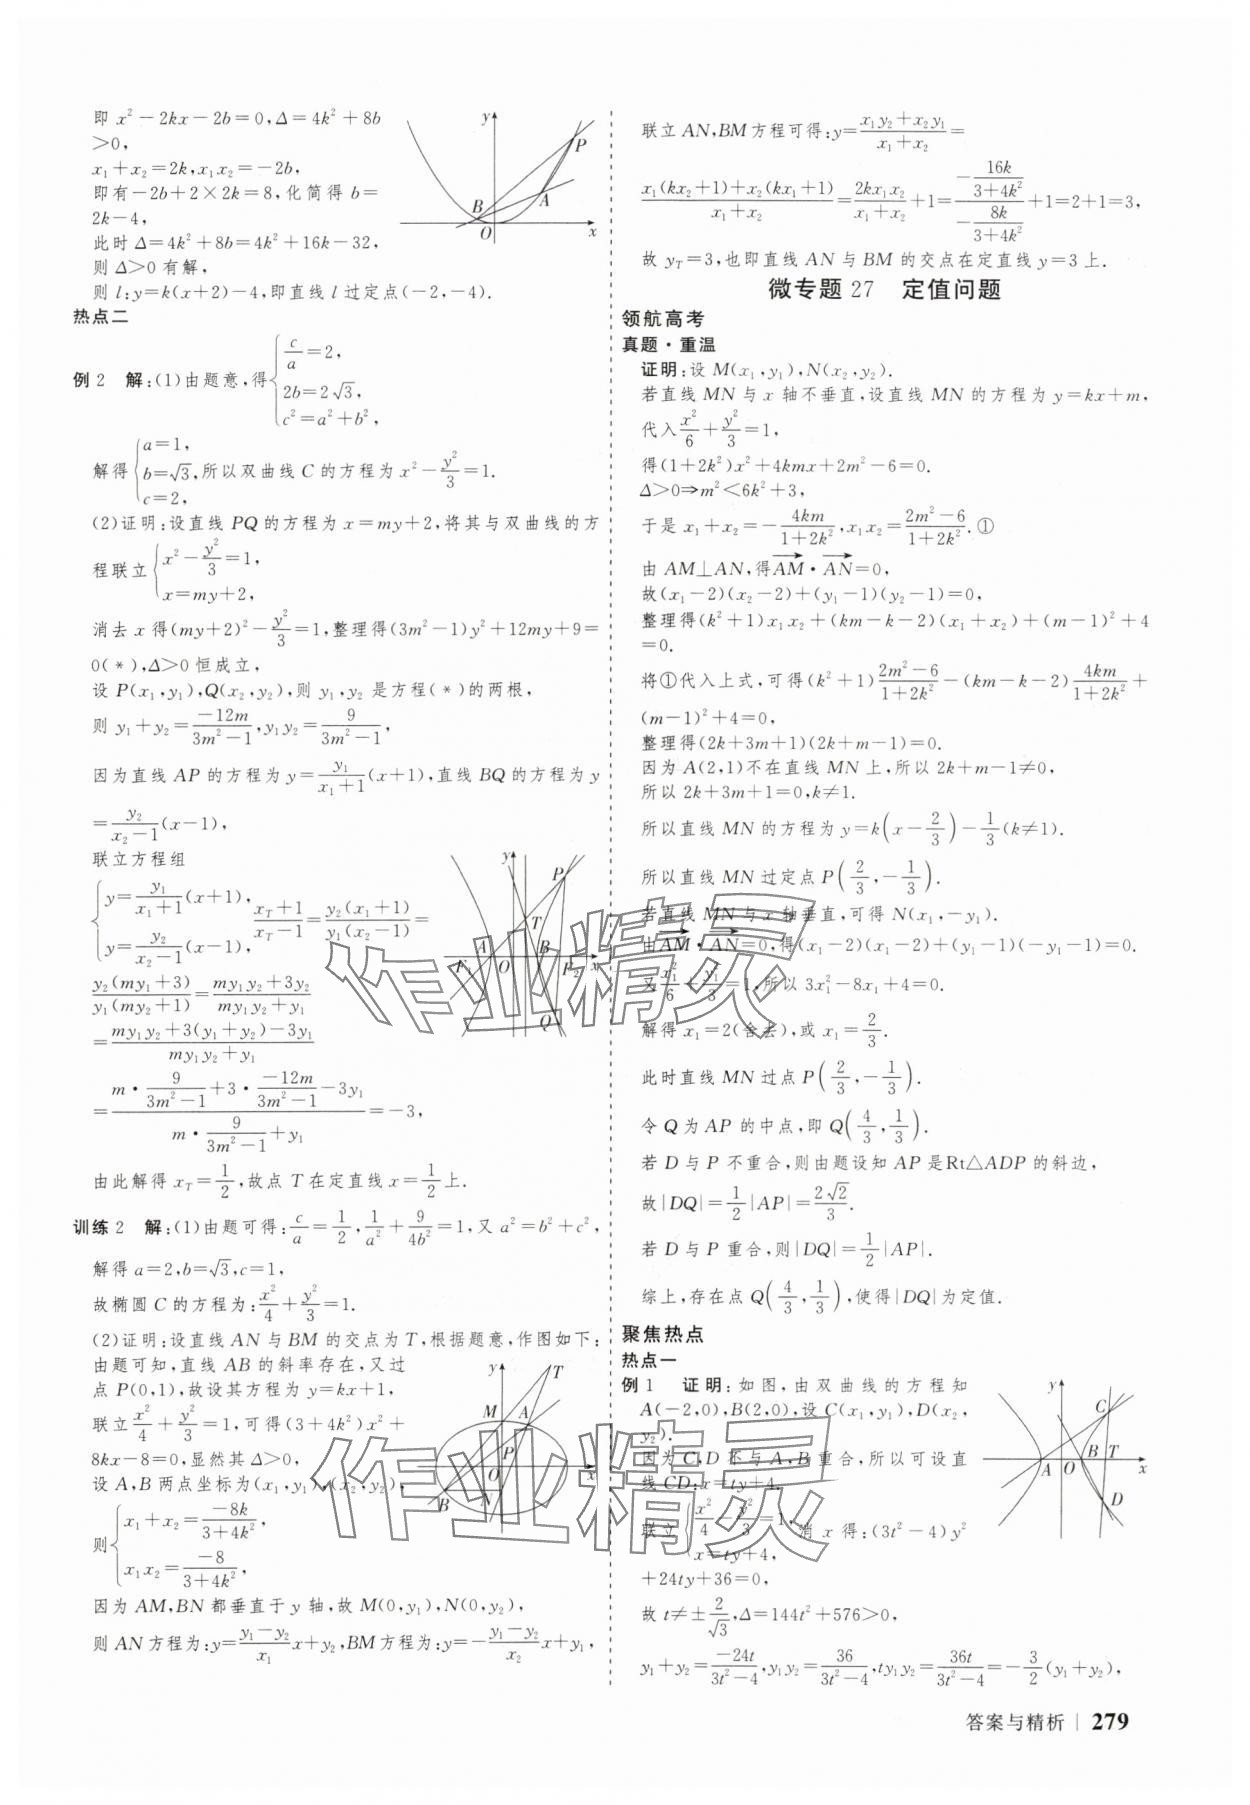 即 x²-2kx-2b=0,Δ=4k²+8b
>0,
x₁+x₂=2k,x₁x₂=-2b,
即有-2b+2×2k=8,化简得 b=
2k-4,
此时 Δ=4k²+8b=4k²+16k-32,
则 Δ>0 有解,
则 l:y=k(x+2)-4,即直线 l 过定点(-2,-4).
热点二
例 2 解:(1)由题意,得{c/a=2, 2b=2√3, c²=a²+b²,
解得{a=1, b=√3, c=2,所以双曲线 C 的方程为 x²-y²/3=1.
(2)证明:设直线 PQ 的方程为 x=my+2,将其与双曲线的方
程联立{x²-y²/3=1, x=my+2,
消去 x 得(my+2)²-y²/3=1,整理得(3m²-1)y²+12my+9=
0(*),Δ>0 恒成立,
设 P(x₁,y₁),Q(x₂,y₂),则 y₁,y₂ 是方程(*)的两根,
则 y₁+y₂=-12m/(3m²-1),y₁y₂=9/(3m²-1),
因为直线 AP 的方程为 y=y₁/(x₁+1)(x+1),直线 BQ 的方程为 y
=y₂/(x₂-1)(x-1),
联立方程组
{y=y₁/(x₁+1)(x+1), y=y₂/(x₂-1)(x-1), (x_T+1)/(x_T-1)=y₂(x₁+1)/y₁(x₂-1)=
y₂(my₁+3)/y₁(my₂+1)=(my₁y₂+3y₂)/(my₁y₂+y₁)
=(my₁y₂+3(y₁+y₂)-3y₁)/(my₁y₂+y₁)
=(m·9/(3m²-1)+3·-12m/(3m²-1)-3y₁)/(m·9/(3m²-1)+y₁)=-3,
由此解得 x_T=1/2,故点 T 在定直线 x=1/2上.
训练 2 解:(1)由题可得:c/a=1/2,1/a²+9/4b²=1,又 a²=b²+c²,
解得 a=2,b=√3,c=1,
故椭圆 C 的方程为:x²/4+y²/3=1.
(2)证明:设直线 AN 与 BM 的交点为 T,根据题意,作图如下:
由题可知,直线 AB 的斜率存在,又过
点 P(0,1),故设其方程为 y=kx+1,
联立x²/4+y²/3=1,可得(3+4k²)x²+
8kx-8=0,显然其 Δ>0,
设 A,B 两点坐标为(x₁,y₁),(x₂,y₂),
则{x₁+x₂=-8k/(3+4k²), x₁x₂=-8/(3+4k²),
因为 AM,BN 都垂直于 y 轴,故 M(0,y₁),N(0,y₂),
则 AN 方程为:y=(y₁-y₂)/x₁ x+y₂,BM 方程为:y=-(y₁-y₂)/x₂ x+y₁,
联立 AN,BM 方程可得:y=(x₁y₂+x₂y₁)/(x₁+x₂)=
(x₁(kx₂+1)+x₂(kx₁+1))/(x₁+x₂)=2kx₁x₂/(x₁+x₂)+1=(-16k/(3+4k²))/(-8k/(3+4k²))+1=2+1=3,
故 y_T=3,也即直线 AN 与 BM 的交点在定直线 y=3 上.
微专题 27 定值问题
领航高考
真题·重温
证明:设 M(x₁,y₁),N(x₂,y₂).
若直线 MN 与 x 轴不垂直,设直线 MN 的方程为 y=kx+m,
代入x²/6+y²/3=1,
得(1+2k²)x²+4kmx+2m²-6=0.
Δ>0⇒m²<6k²+3,
于是 x₁+x₂=-4km/(1+2k²),x₁x₂=(2m²-6)/(1+2k²).①
由 AM⊥AN,得AM·AN=0,
故(x₁-2)(x₂-2)+(y₁-1)(y₂-1)=0,
整理得(k²+1)x₁x₂+(km-k-2)(x₁+x₂)+(m-1)²+4
=0.
将①代入上式,可得(k²+1)(2m²-6)/(1+2k²)-(km-k-2)4km/(1+2k²)+
(m-1)²+4=0,
整理得(2k+3m+1)(2k+m-1)=0.
因为 A(2,1)不在直线 MN 上,所以 2k+m-1≠0,
所以 2k+3m+1=0,k≠1.
所以直线 MN 的方程为 y=k(x-2/3)-1/3(k≠1).
所以直线 MN 过定点 P(2/3,-1/3).
若直线 MN 与 x 轴垂直,可得 N(x₁,-y₁).
由AM·AN=0,得(x₁-2)(x₁-2)+(y₁-1)(-y₁-1)=0.
又x₁²/6+y₁²/3=1,所以 3x₁²-8x₁+4=0.
解得 x₁=2(舍去),或 x₁=2/3.
此时直线 MN 过点 P(2/3,-1/3).
令 Q 为 AP 的中点,即 Q(4/3,1/3).
若 D 与 P 不重合,则由题设知 AP 是Rt△ADP 的斜边,
故|DQ|=1/2|AP|=2√2/3.
若 D 与 P 重合,则|DQ|=1/2|AP|.
综上,存在点 Q(4/3,1/3),使得|DQ|为定值.
聚焦热点
热点一
例 1 证明:如图,由双曲线的方程知
A(-2,0),B(2,0),设 C(x₁,y₁),D(x₂,
y₂).
因为 C,D 不与 A,B 重合,所以可设直
线 CD:x=ty+4,
联立{x²/4-y²/3=1, x=ty+4, 消 x 得:(3t²-4)y²
+24ty+36=0,
故 t≠±2/√3,Δ=144t²+576>0,
y₁+y₂=-24t/(3t²-4),y₁y₂=36/(3t²-4),ty₁y₂=36t/(3t²-4)=-3/2(y₁+y₂),
答案与精析 | 279
作业精灵
作业精灵